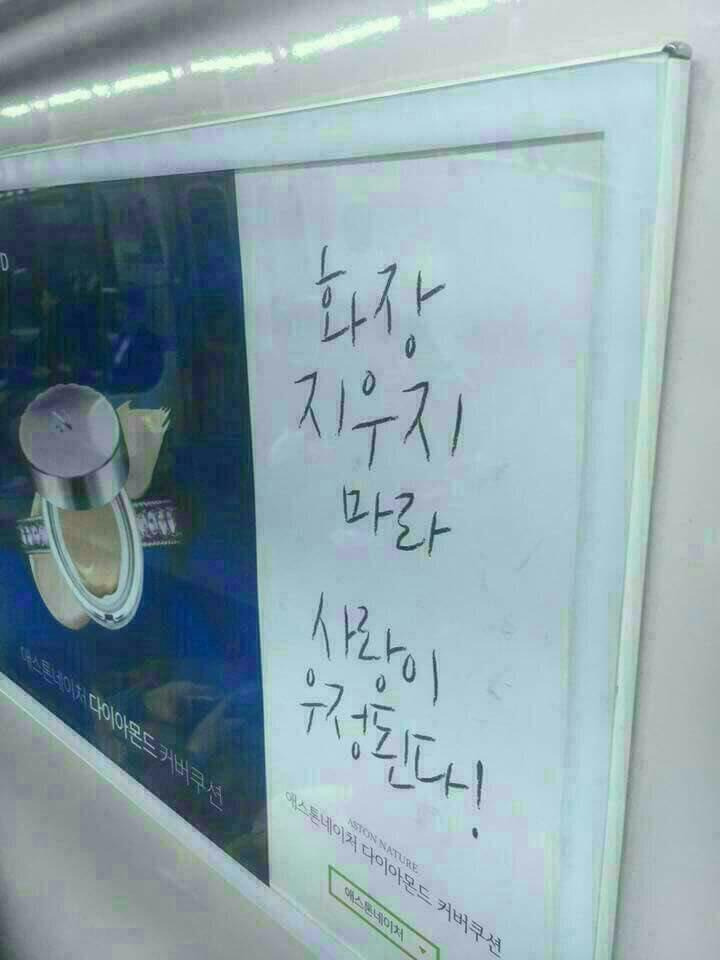 D
화장
지우지
마라
사랑이
우정된다!
애스톤네이처 다이아몬드 커버쿠션
ASTON NATURE
애스톤네이처 다이아몬드 커버쿠션
애스톤네이처